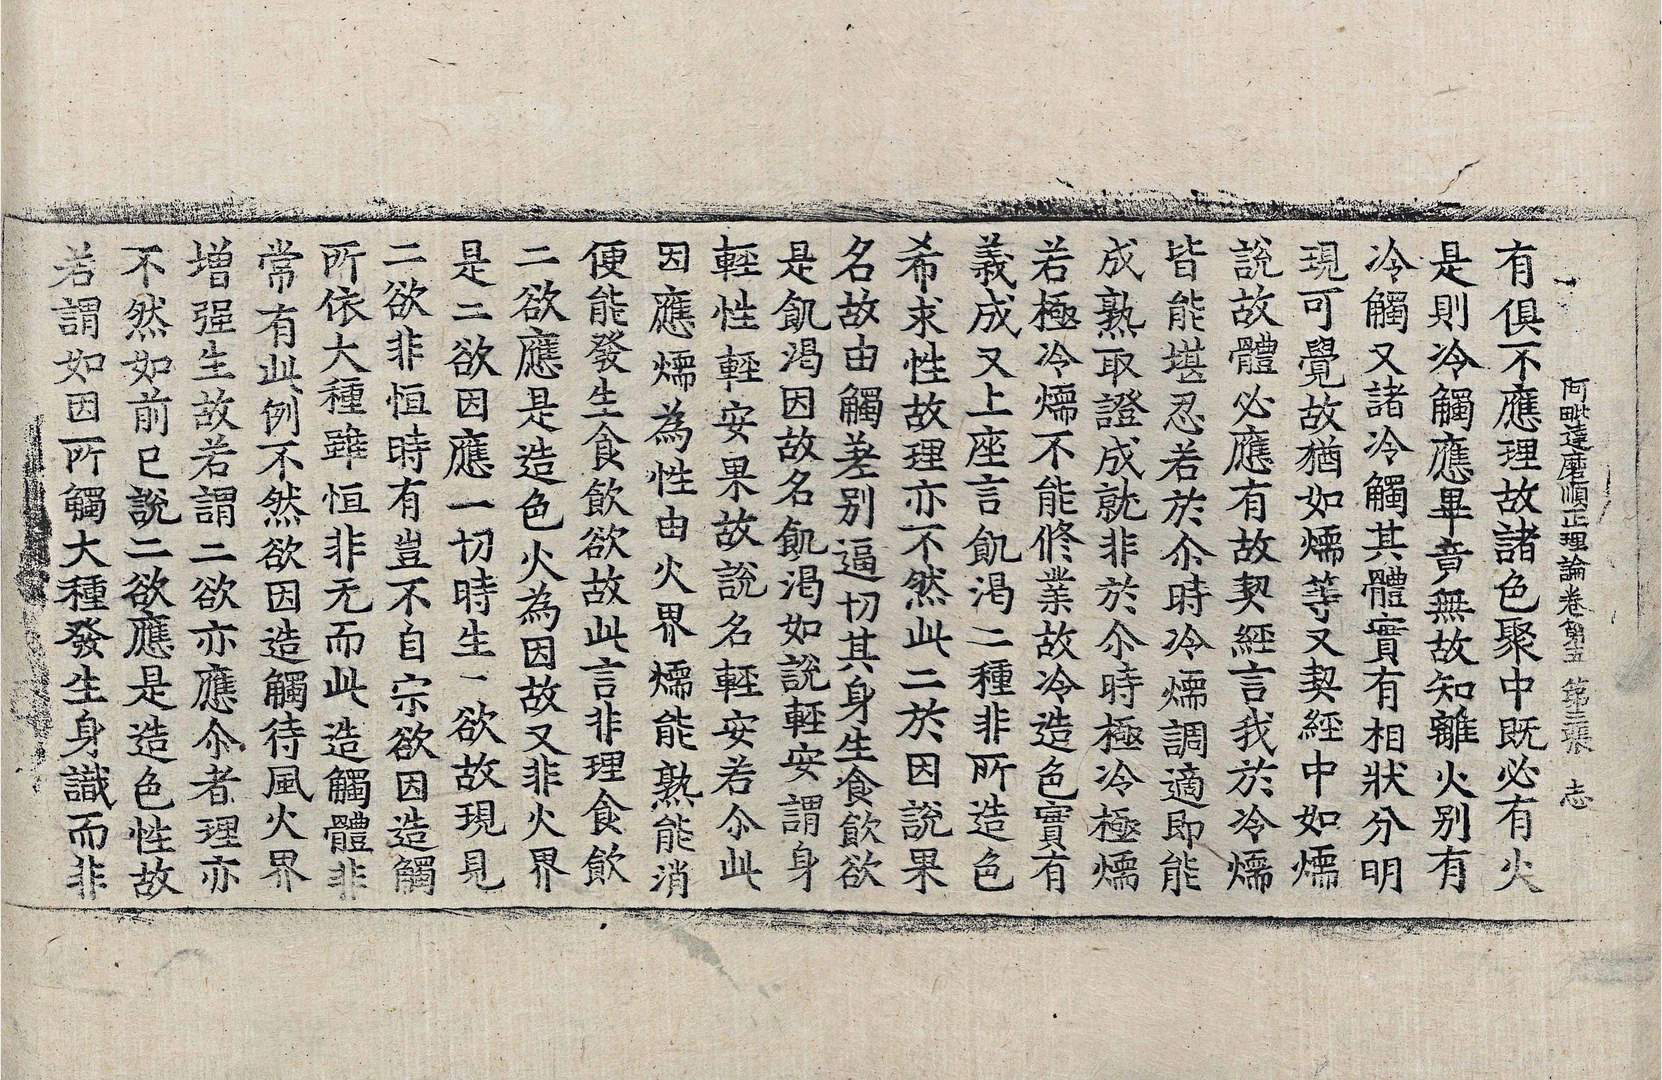 阿毗達磨順正理論卷第五 第三張 志
有俱不應理故諸色聚中既必有火
是則冷觸應畢竟無故知離火别有
冷觸又諸冷觸其體實有相狀分明
現可覺故猶如煗等又契經中如煗
說故體必應有故契經言我於冷煗
皆能堪忍若於尒時冷煗調適即能
成熟取證成就非於尒時極冷極煗
若極冷煗不能修業故冷造色實有
義成又上座言飢渴二種非所造色
希求性故理亦不然此二於因說果
名故由觸差别逼切其身生食飲欲
是飢渴因故名飢渴如說輕安謂身
輕性輕安果故說名輕安若尒此
因應煗為性由火界煗能熟能消
便能發生食飲欲故此言非理食飲
二欲應是造色火為因故又非火界
是二欲因應一切時生二欲故現見
二欲非恒時有豈不自宗欲因造觸
所依大種雖恒非无而此造觸體非
常有此例不然欲因造觸待風火界
增强生故若謂二欲亦應尒者理亦
不然如前已說二欲應是造色性故
若謂如因所觸大種發生身識而非